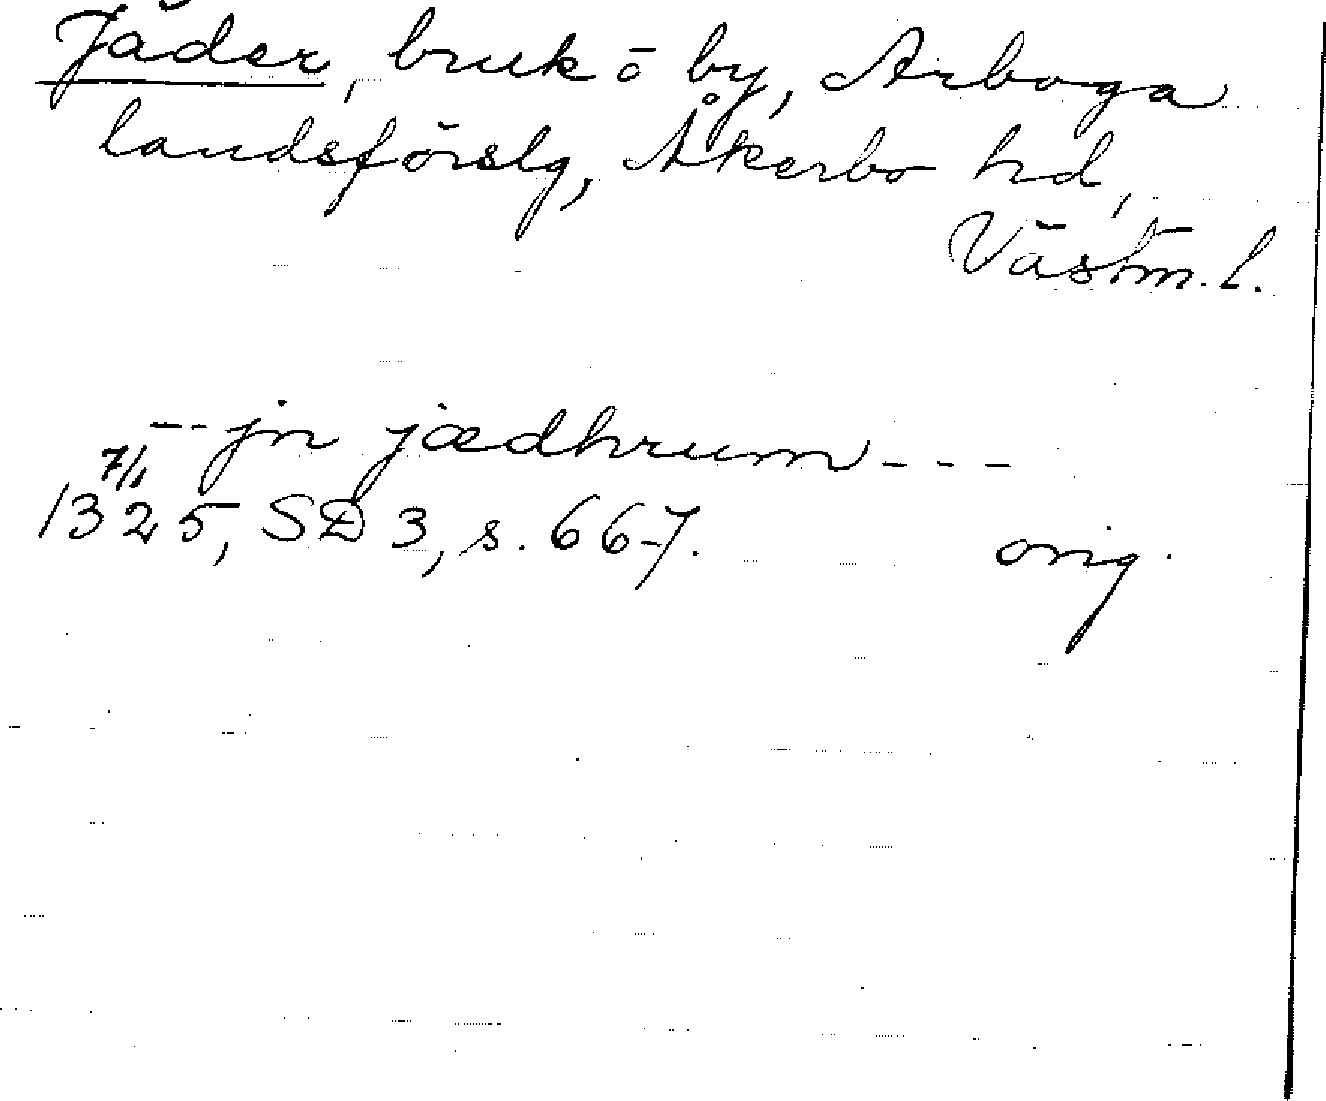 Jäder, bruk o by, Arboga
landsförslg, Åkerbo hd,
Västm. l.
--- jn jædhrum ---
7/1
1325, SD 3, s. 667. orig.